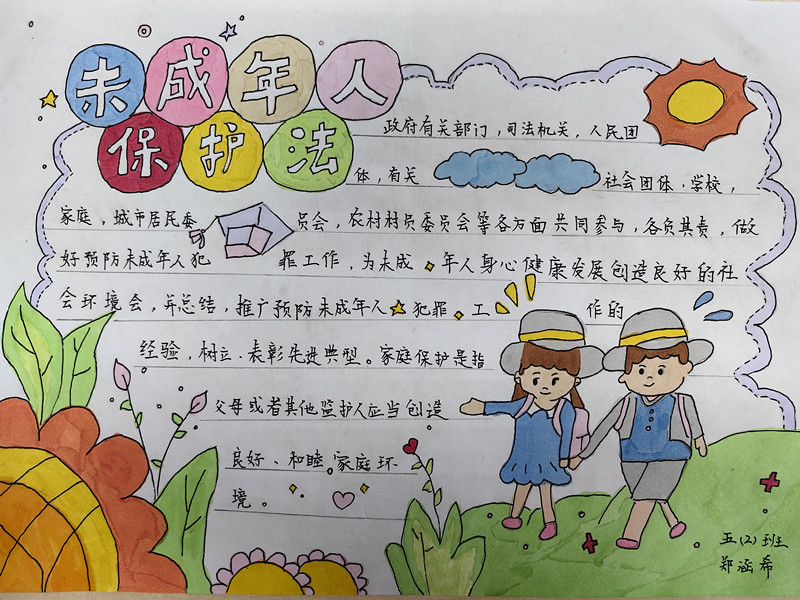 未成年人
保护法
政府有关部门，司法机关，人民团
体，有关社会团体·学校，
家庭，城市居民委员会，农村村员委员会等各方面共同参与，各负其责，做
好预防未成年人犯罪工作，为未成年人身心健康发展创造良好的社
会环境会，并总结，推广预防未成年人犯罪工作的
经验，树立、表彰先进典型。家庭保护是指
父母或者其他监护人应当创造
良好、和睦。家庭环
境。
五(2)班
郑涵希